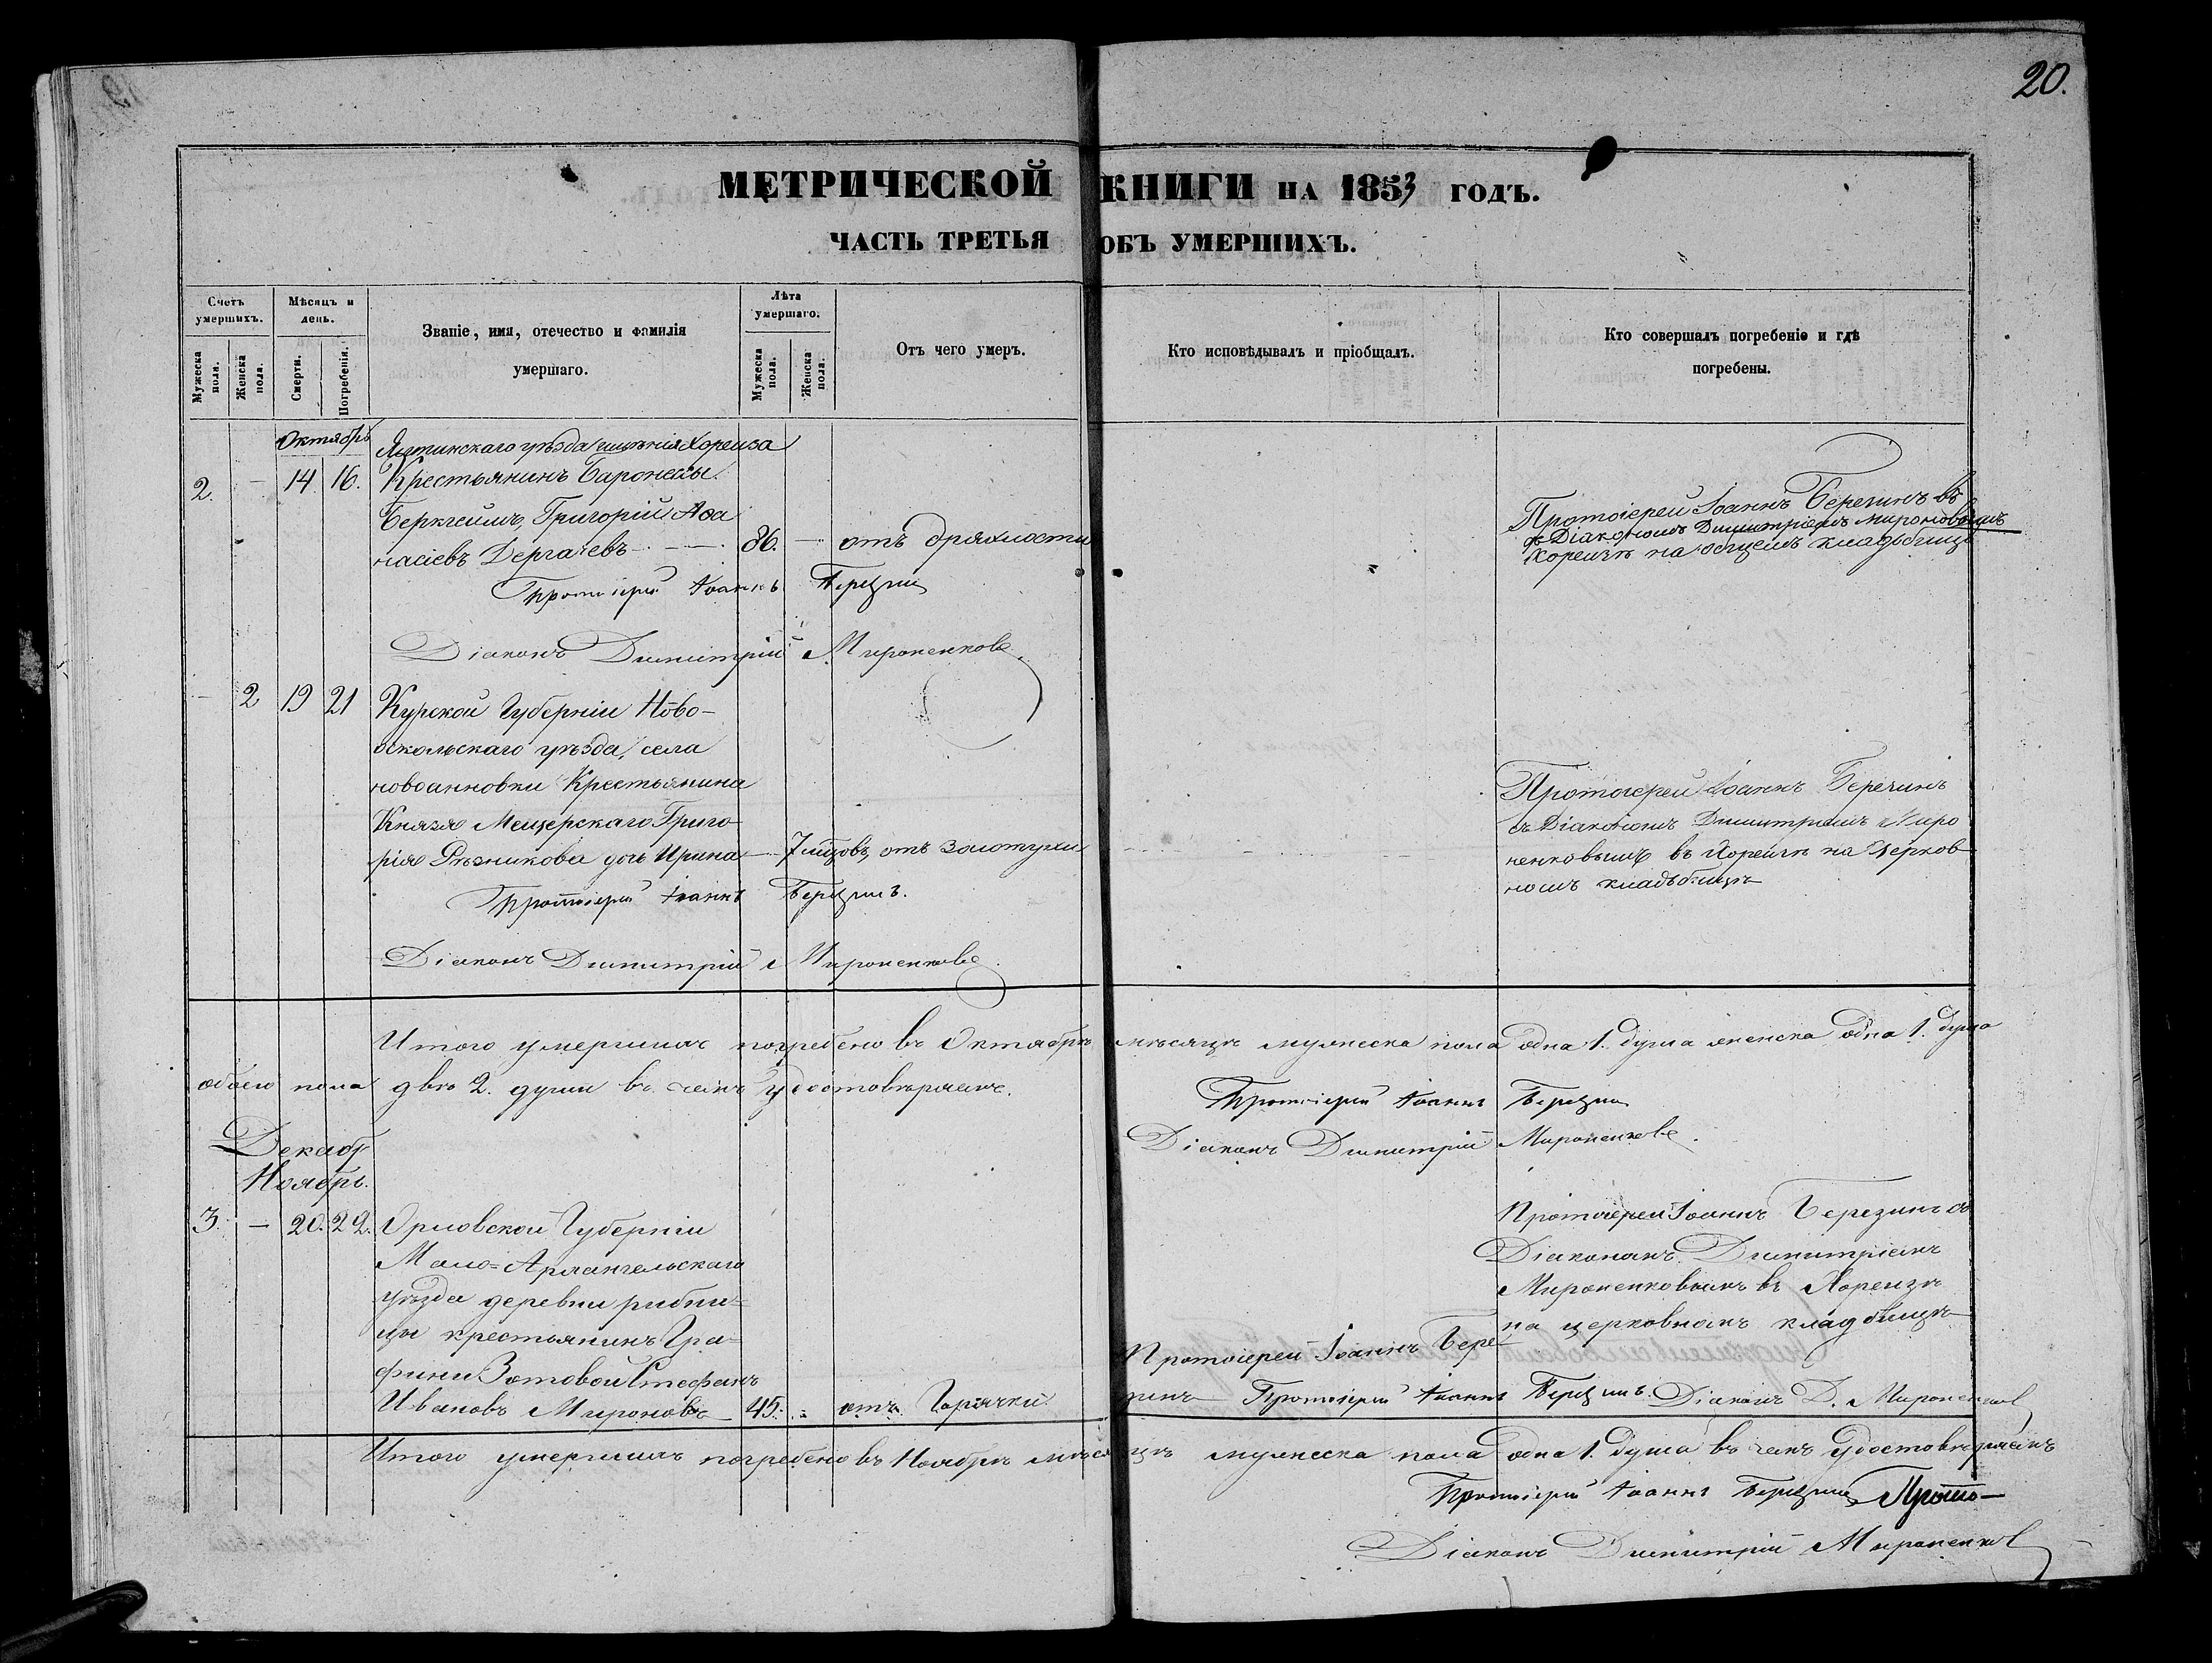 20.
МЕТРИЧЕСКОЙ КНИГИ НА 1853 ГОДЪ.
ЧАСТЬ ТРЕТЬЯ ОБЪ УМЕРШИХЪ.
Счетъ умершихъ.
Мужеска пола.
Женска пола.
Мѣсяцъ и день.
Смерти.
Погребенія.
Званіе, имя, отечество и фамилія
умершаго.
Лѣта умершаго.
Мужеска пола.
Женска пола.
Отъ чего умеръ.
Кто исповѣдывалъ и пріобщалъ.
Кто совершалъ погребеніе и гдѣ
погребены.
Октябрь
Ялтинскаго уѣзда имѣнія Хореиза
2. - 14 16. Крестьянинъ Баронессы
Беркгеймъ, Григорій Аѳа
насіевъ Дергачевъ 86. - отъ дряхлости
Протоіерей Іоаннъ Березинъ въ
съ Діакономъ Димитріемъ
Хореизѣ на общемъ кладбищѣ
Протоіерей Іоаннъ Березинъ
Діаконъ Димитрій Мироненковъ
- 2 19 21 Курской Губерніи Ново-
оскольскаго уѣзда, села
новоанновки Крестьянина
Князя Мещерскаго Григо
рія Рѣзникова дочь Ирина 7 мѣсяцовъ, отъ золотухи
Протоіерей Іоаннъ Березинъ
съ Діакономъ Димитріемъ Миро
ненковымъ въ Хореизѣ на Церков
номъ кладбищѣ
Протоіерей Іоаннъ Березинъ.
Діаконъ Димитрій Мироненковъ.
Итого умершихъ погребено въ Октябрѣ мѣсяцѣ мужеска пола одна 1. душа женска одна 1. душа
обоего пола двѣ 2. души въ чемъ удостовѣряемъ.
Протоіерей Іоаннъ Березинъ
Діаконъ Димитрій Мироненковъ.
Декабр
Ноябрь.
3. - 20. 22. Орловской Губерніи
Мало=Архангельскаго
уѣзда деревни рибни=
цы крестьянинъ Гра=
фини Зотовой Стефанъ
Ивановъ Мироновъ 45. отъ Горячки.
Протоіерей Іоаннъ Бере
зинъ
Протоіерей Іоаннъ Березинъ съ
Діакономъ Димитріемъ
Мироненковымъ въ Хореизѣ
на церковномъ кладбищѣ
Протоіерей Іоаннъ Березинъ. Діаконъ Д. Мироненковъ
Итого умершихъ погребено въ Ноябрѣ мѣсяцѣ мужеска пола одна 1. душа въ чемъ удостовѣряемъ
Протоіерей Іоаннъ Березинъ Прото-
Діаконъ Димитрій Мироненковъ